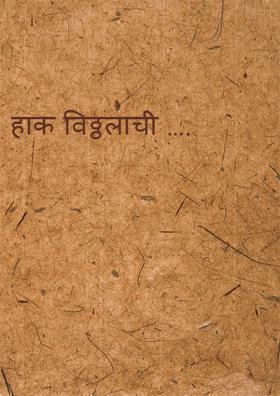 हाक विठ्ठलाची ....